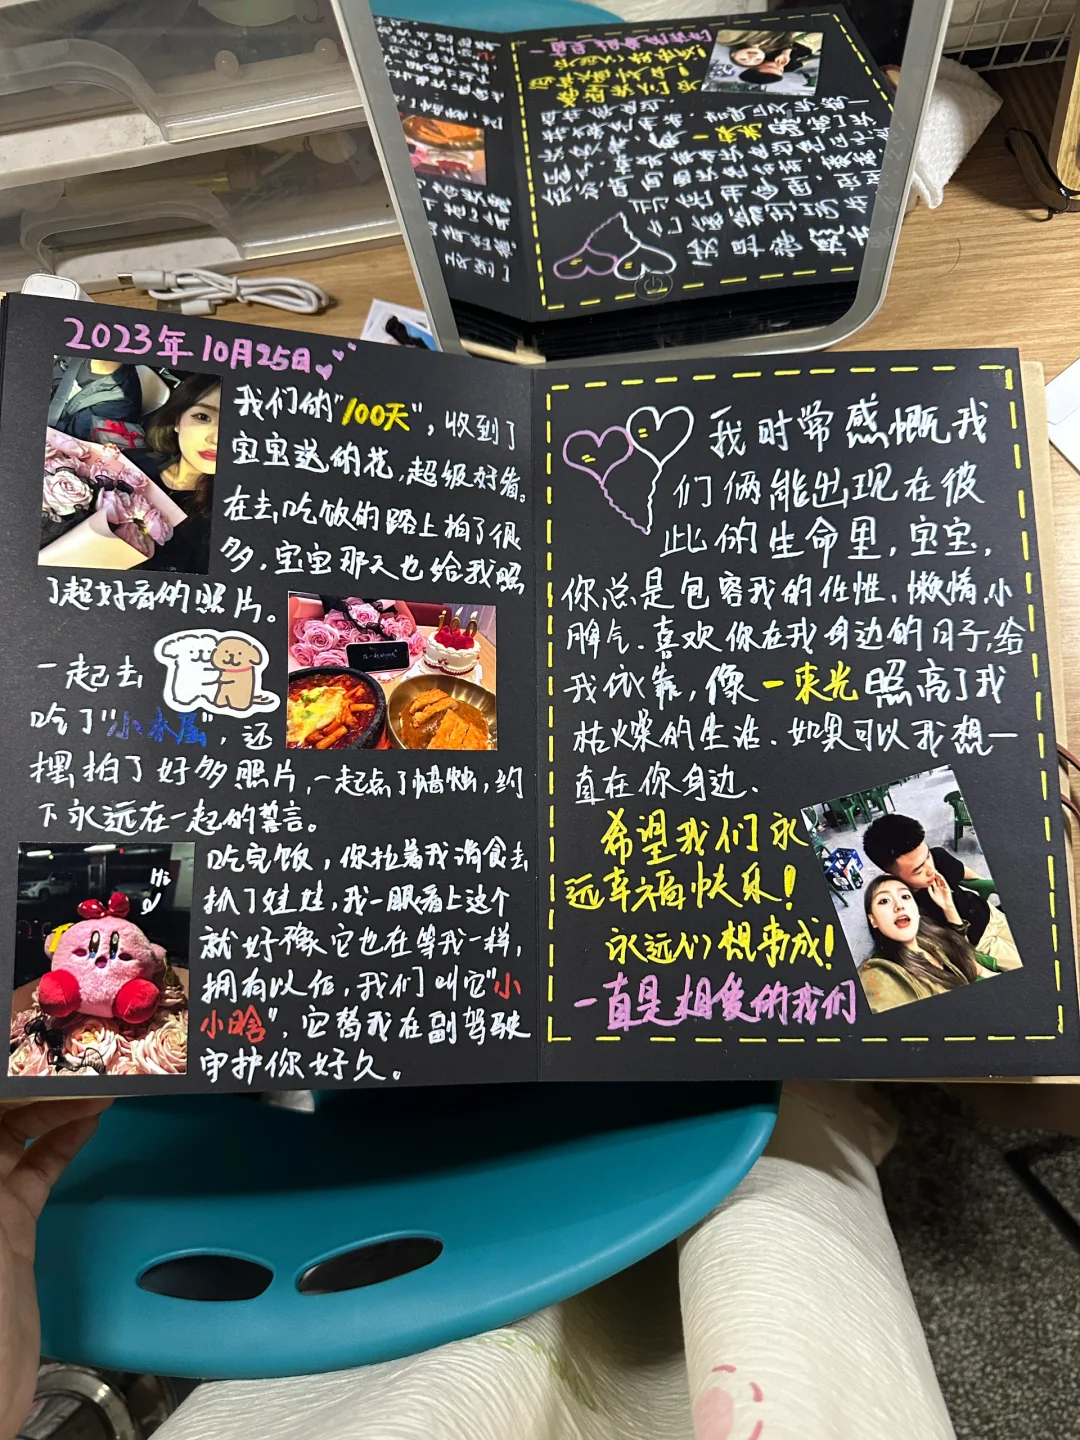 2023年10月25日
我们的"100天", 收到了
宝宝送的花,超级好看。
在去吃饭的路上拍了很
多,宝宝那天也给我照
了超好看的照片。
一起去
吃了"小木屋",还
摆拍了好多照片,一起点了蜡烛,约
下永远在一起的誓言。
Hi
吃完饭,你拉着我消食去
抓了娃娃,我一眼看上这个
就好像它也在等我一样,
拥有以后,我们叫它"小
小晗",它替我在副驾驶
守护你好久。
我时常感慨我
们俩能出现在彼
此的生命里,宝宝,
你总是包容我的任性、懒惰、小
脾气.喜欢你在我身边的日子,给
我依靠,像一束光照亮了我
枯燥的生活.如果可以我想一
直在你身边.
希望我们永
远幸福快乐!
永远心想事成!
一直是相爱的我们